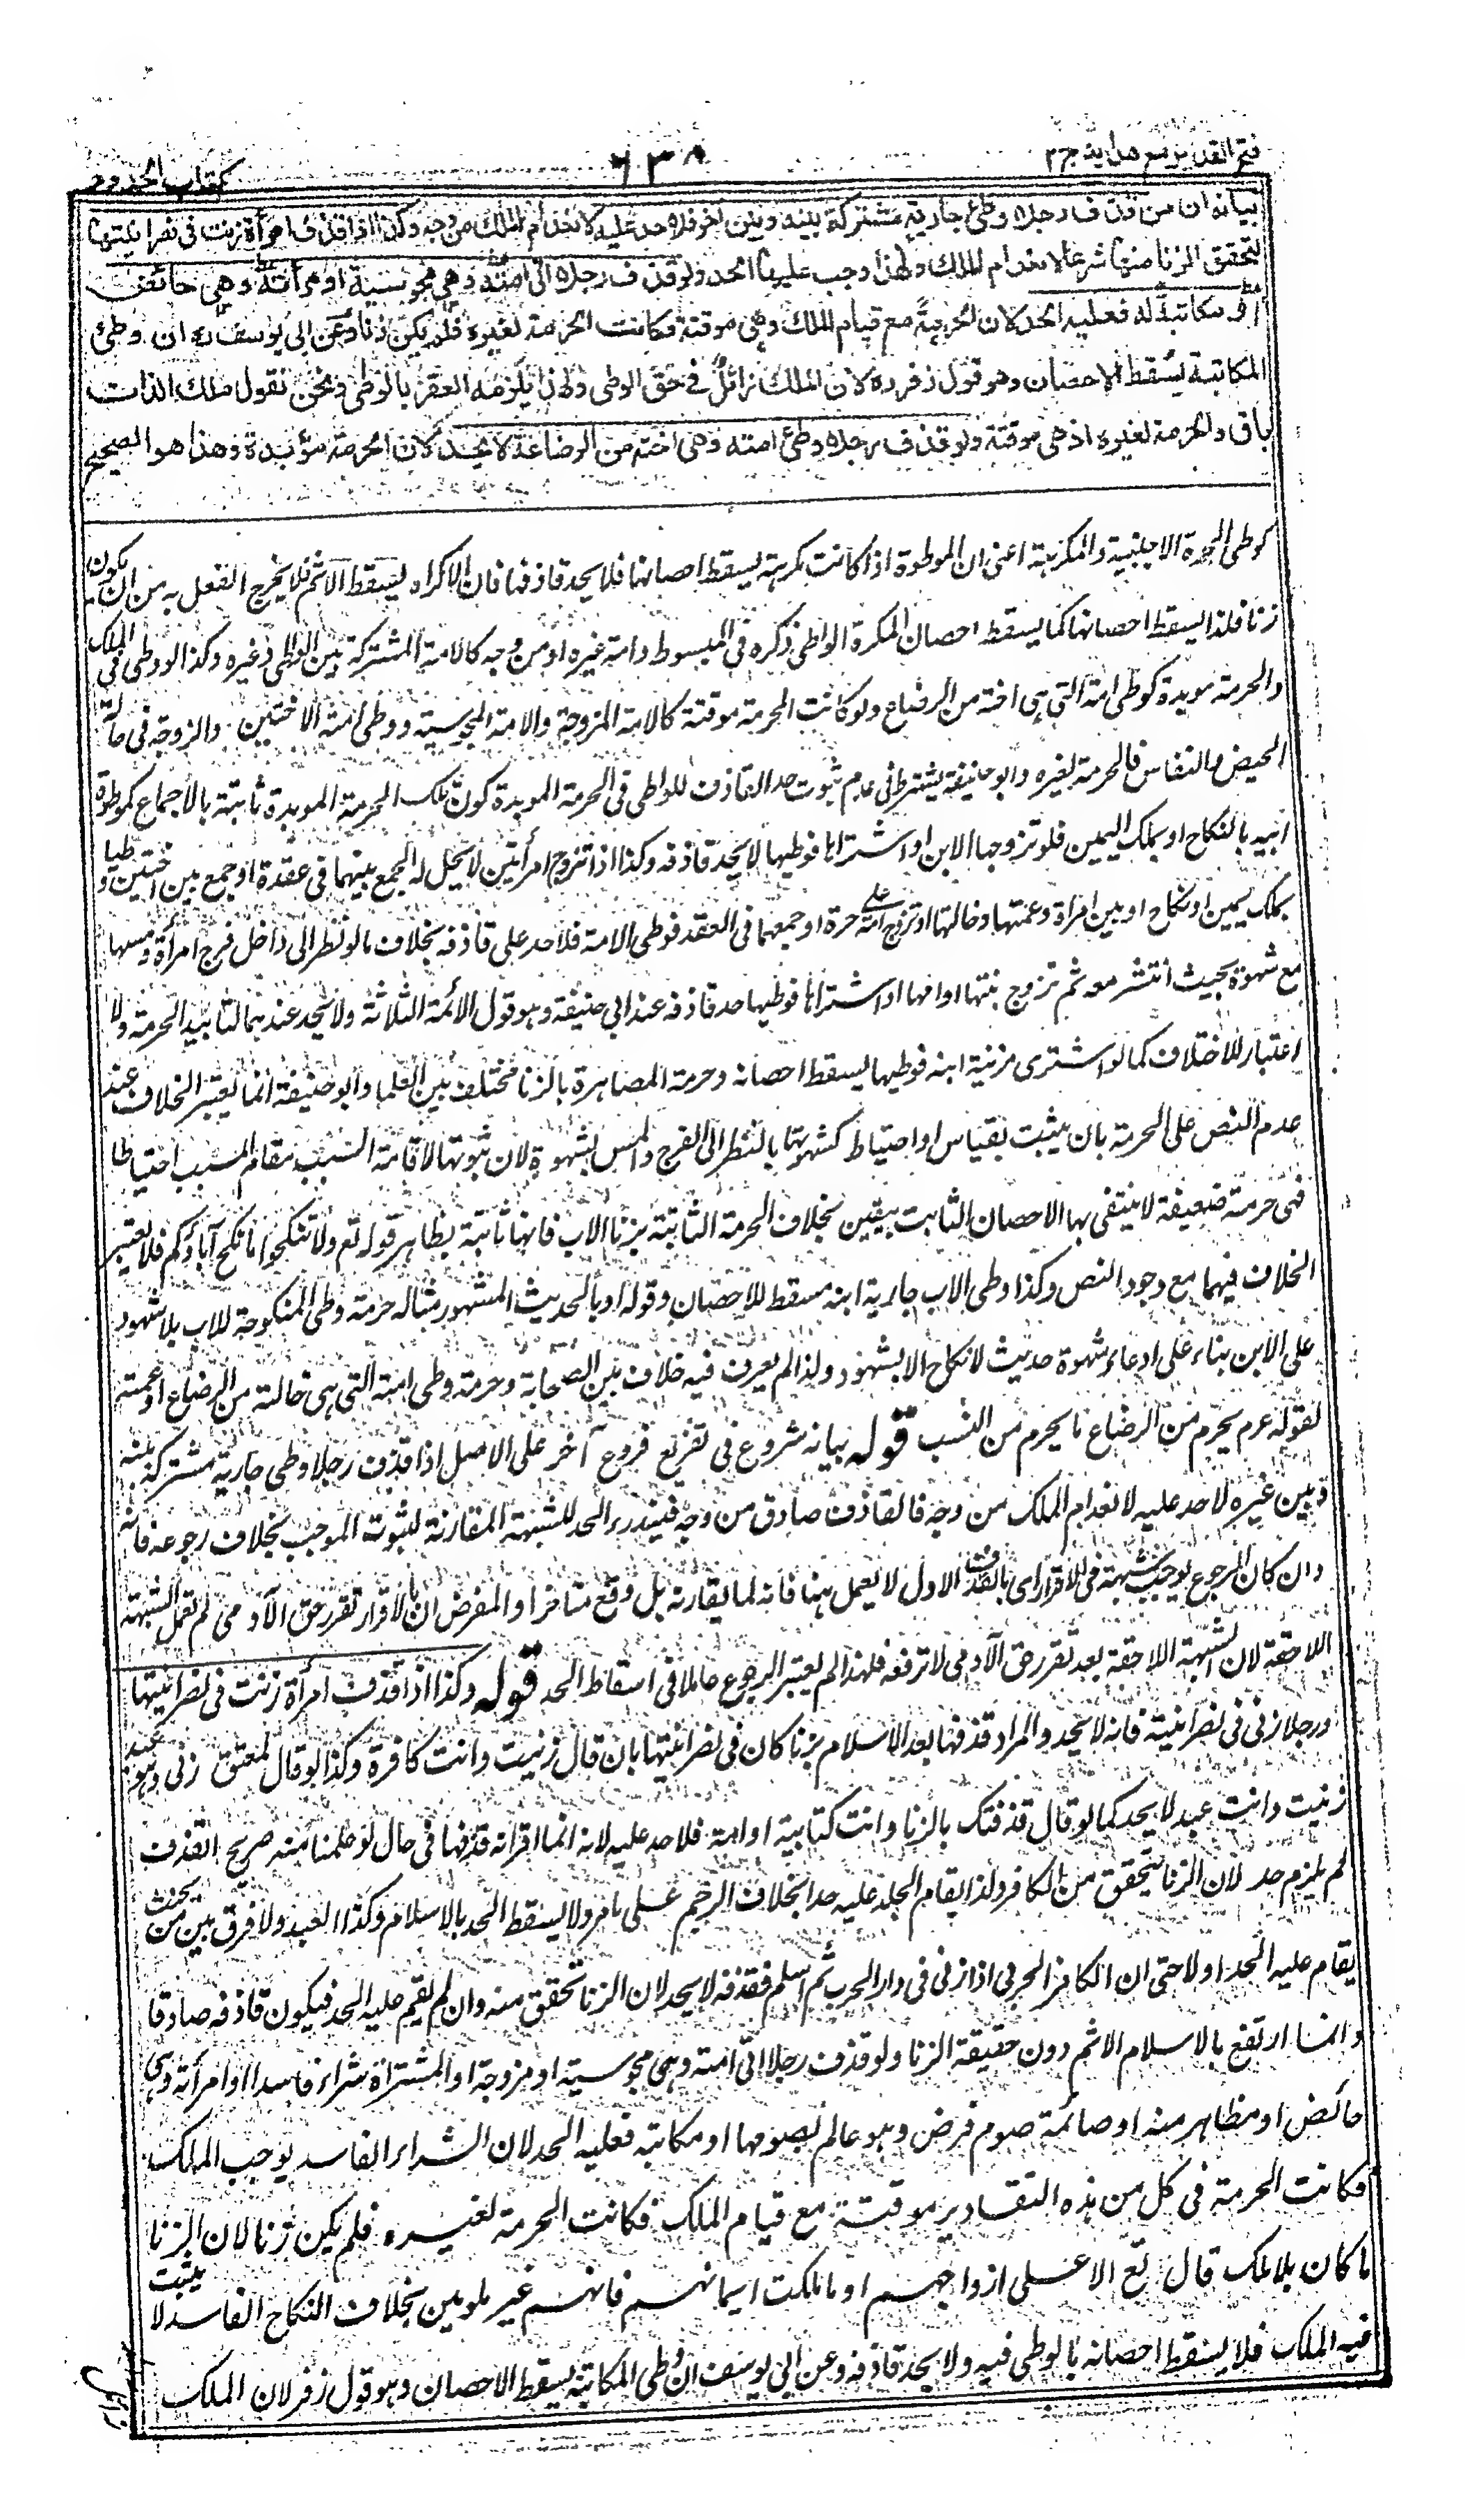 فتح القدير مع هداية ج٢
٦٣٨
كتاب الحدود
بيانه ان من قذف رجلا وطئ جارية مشتركة بينه وبين آخر فلا حد عليه لانعدام الملك من وجه وكذا اذا قذف امرأة زنت فى نصرانيتها
لتحقق الزنا منها شرعا لانعدام الملك ولهذا وجب عليها الحد ولو قذف رجلا اتى امته وهى مجوسية او امرأته وهى حائض
او مكاتبة له فعليه الحد لان الحرمة مع قيام الملك وهى موقتة فكانت الحرمة لغيره فلم يكن زنا وعن ابى يوسف ره ان وطئ
المكاتبة يسقط الاحصان وهو قول زفر ره لان الملك زائل فى حق الوطى ولهذا يلزمه العقر بالوطى ونحن نقول ملك الذات
باق والحرمة لغيره اذ هى موقتة ولو قذف رجلا وطئ امته وهى اخته من الرضاعة لا يحد لان الحرمة مؤبدة وهذا هو الصحيح
كوطى الحرة الاجنبية والمكرهة اعنى ان الموطوة اذا كانت مكرهة يسقط احصانها فلا يحد قاذفها فان الاكراه يسقط الاثم فلا يخرج الفعل به من ان يكون
زنا فلذا يسقط احصانها كما يسقط احصان المكره الواطى ذكره فى المبسوط وامة غيره او من وجه كالامة المشتركة بين الواطى وغيره وكذا الوطى فى الملك
والحرمة موبدة كوطى امة التى هى اخته من الرضاع ولو كانت الحرمة موقتة كالامة المزوجة والامة المجوسية ووطى امته الاختين والزوجة فى حالة
الحيض والنفاس فالحرمة لغيره وابو حنيفة يشترط فى عدم ثبوت حد القاذف للواطى فى الحرمة الموبدة كون تلك الحرمة الموبدة ثابتة بالاجماع كموطوة
ابيه بالنكاح او بملك اليمين فلو تزوجها الابن او اشتراها فوطيها لا يحد قاذفه وكذا اذا تزوج امرأتين لا يحل له الجمع بينهما فى عقدة او جمع بين اختين وطيا
بملك يمين او نكاح او بين امرأة وعمتها وخالتها او تزوج امة على حرة او جمعهما فى العقد فوطى الامة فلا حد على قاذفه بخلاف ما لو نظر الى داخل فرج امرأة ومسها
مع شهوة بحيث انتشر معه ثم تزوج بنتها او امها او اشتراها فوطيها حد قاذفه عند ابى حنيفة وهو قول الائمة الثلاثة ولا يحد عندهما لتأبيد الحرمة ولا
اعتبار للاختلاف كما لو اشترى مزنية ابنه فوطيها يسقط احصانه وحرمة المصاهرة بالزنا مختلف بين العلما وابو حنيفة انما يعتبر الخلاف عند
عدم النص على الحرمة بان يثبت بقياس او احتياط كثبوتها بالنظر الى الفرج والمس بشهوة لان ثبوتها لاقامة السبب مقام المسبب احتياطا
فهى حرمة ضعيفة لا ينتفى بها الاحصان الثابت بيقين بخلاف الحرمة الثابتة بزنا الاب فانها ثابتة بظاهر قوله تع ولا تنكحوا ما نكح آباؤكم فلا يعتبر
الخلاف فيهما مع وجود النص وكذا وطى الاب جارية ابنه مسقط للاحصان وقوله او بالحديث المشهور مثاله حرمة وطى المنكوحة للاب بلا شهود
على الابن بناء على ادعاء شهرة حديث لا نكاح الا بشهود ولذا لم يعرف فيه خلاف بين الصحابة وحرمة وطى امته التى هى خالته من الرضاع او عمته
لقوله عم يحرم من الرضاع ما يحرم من النسب قوله بيانه شروع فى تفريع فروع آخر على الاصل اذا قذف رجلا وطى جارية مشتركة بينه
وبين غيره لا حد عليه لانعدام الملك من وجه فالقاذف صادق من وجه فيندرء الحد للشبهة المقارنة لثبوت الموجب بخلاف رجوعه فانه
وان كان الرجوع يوجب شبهة فى الاقرار اى بالقذف الاول لا يعمل هنا فانه لما يقارنه بل وقع متاخرا والمفرض ان بالاقرار تقرر حق الآدمى لم تعمل الشبهة
اللاحقة لان الشبهة اللاحقة بعد تقرر حق الآدمى لا ترفعه فلهذا لم يعتبر الرجوع عاملا فى اسقاط الحد قوله وكذا اذا قذف امرأة زنت فى نصرانيتها
ورجلا زنى فى نصرانيته فانه لا يحد والمراد قذفها بعد الاسلام بزنا كان فى نصرانيتها بان قال زنيت وانت كافرة وكذا لو قال لمعتق زنى وهو عبد
زنيت وانت عبد لا يحد كما لو قال قذفتك بالزنا وانت كتابية او امة فلا حد عليه لانه انما اقر انه قذفها فى حال لو علمنا منه صريح القذف
لم يلزم حد لان الزنا يتحقق من الكافر ولذا يقام الجلد عليه حدا بخلاف الرجم على ما مر ولا يسقط الحد بالاسلام وكذا العبد ولا فرق بين من بحيث
يقام عليه الحد اولا حتى ان الكافر الحربى اذا زنى فى دار الحرب ثم اسلم فقذفه لا يحد لان الزنا تحقق منه وان لم يقم عليه الحد فيكون قاذفه صادقا
وانما ارتفع بالاسلام الاثم دون حقيقة الزنا ولو قذف رجلا اتى امته وهى مجوسية او مزوجة او المشتراة شراء فاسدا او امرأته وهى
حائض او مظاهر منه او صائمة صوم فرض وهو عالم بصومها او مكاتبه فعليه الحد لان الشراء الفاسد يوجب الملك
فكانت الحرمة فى كل من هذه التقادير موقتة مع قيام الملك فكانت الحرمة لغيره فلم يكن زنا لان الزنا
ما كان بلا ملك قال تع الا على ازواجهم او ما ملكت ايمانهم فانهم غير ملومين بخلاف النكاح الفاسد لا يثبت
فيه الملك فلا يسقط احصانه بالوطى فيه ولا يحد قاذفه وعن ابى يوسف ان وطى المكاتبة يسقط الاحصان وهو قول زفر لان الملك
زائل